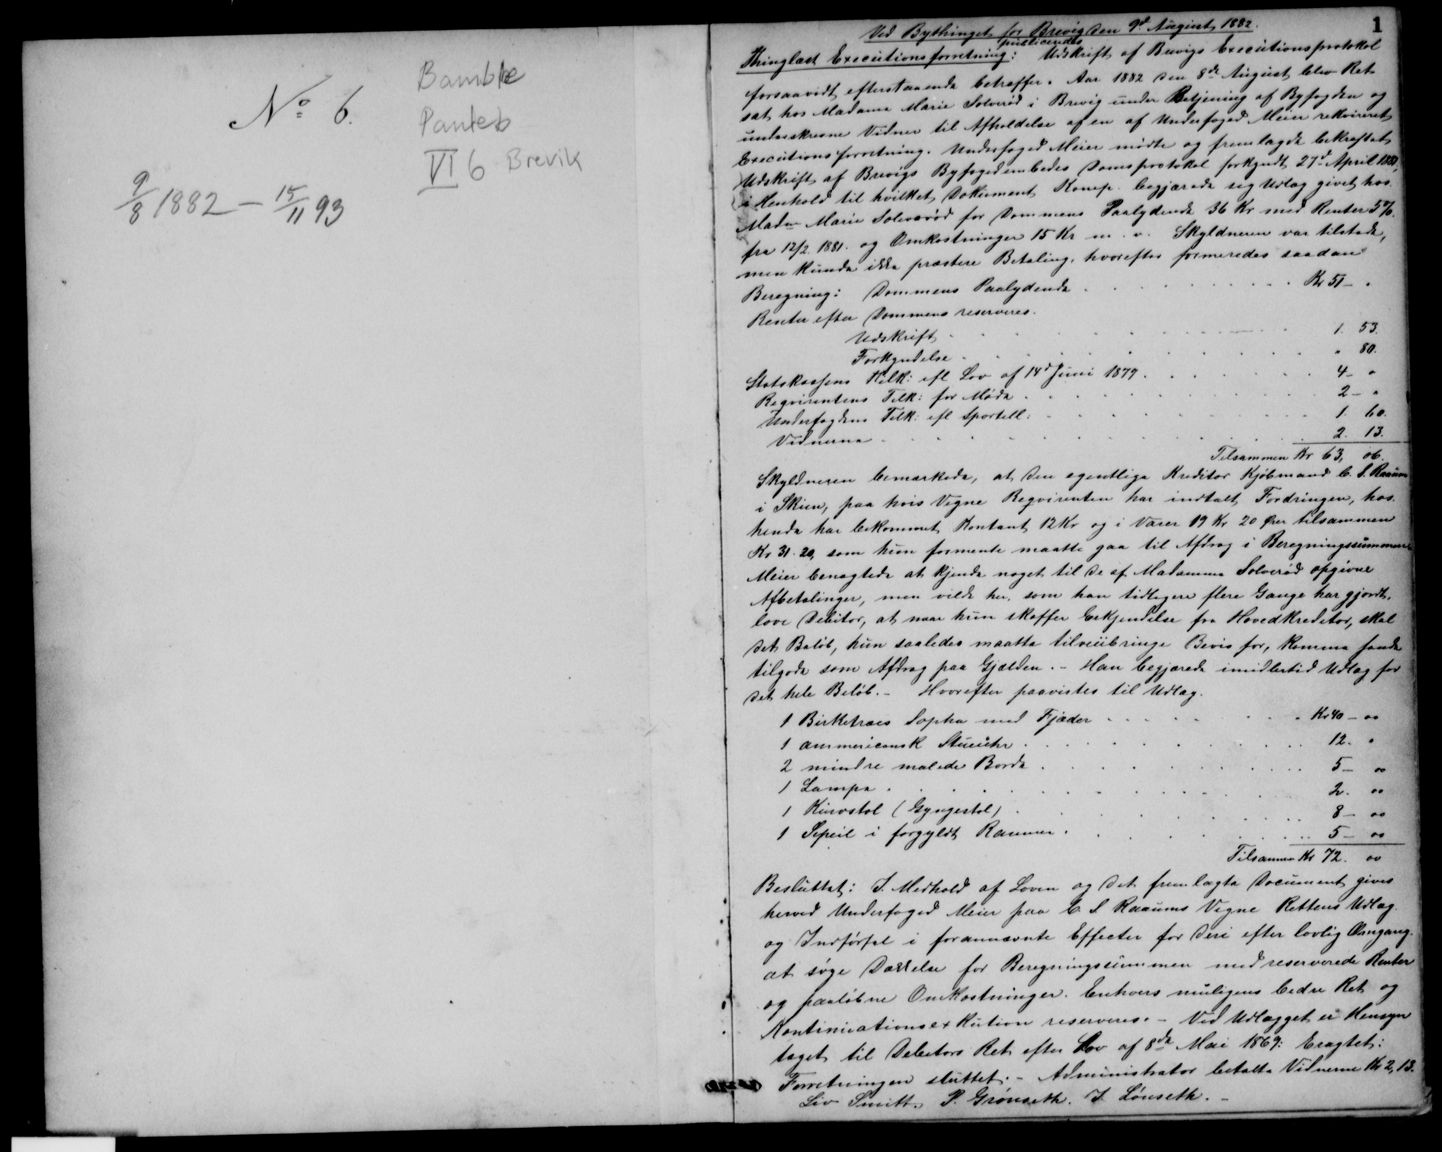 No 6.
Bamble
Panteb
VI 6 Brevik
9/8 1882 – 15/11 93
1
Ved Bythinget for Brevig den 9d August 1882.
publicerdes
Thinglæst Executionsforretning: Udskrift af Brevigs Executionsprotokol
forsaavidt efterstaaende betræffer. Aar 1882 den 8de August blev Ret
sat hos Madame Marie Solverød i Brevig under Betjening af Byfogden og
underskrevne Vidner til Afholdelse af en af Underfoged Meier rekvireret
Executionsforretning. Underfoged Meier mødte og fremlagde bekræftet
Udskrift af Brevigs Byfogedembedes Domsprotokol forkyndt 27d April 1882,
i Henhold til hvilket Dokument Komp. begjærede sig Udlæg givet hos
Mad– Marie Solverød for Dommens Paalydende 36 Kr med Renter 5%
fra 12/2 1881. og Omkostninger 15 Kr m. v. Skyldneren var tilstede,
men kunde ikke præstere Betaling, hvorefter formeredes saadan
Beregning: Dommens Paalydende Kr 51 – "
Renter efter Dommens reserveres.
Udskrift 1. 53.
Forkyndelse " 80.
Statskassens Tilk: efl Lov af 14d Juni 1879 4 – "
Reqvirentens Tilk: for Møde 2 – "
Underfogdens Tilk. efl Sportell: 1. 60.
Vidnerne 2. 13.
Tilsammen Kr 63, 06.
Skyldneren bemærkede, at den egentlige Kreditor Kjøbmand C. S. Raaum
i Skien, paa hvis Vegne Reqvirenten har indtalt Fordringen, hos
hende har bekommet Kontant 12 Kr og i Varer 19 Kr 20 Øre tilsammen
Kr 31. 20, som hun formente maatte gaa til Afdrag i Beregningssummen
Meier benægtede at kjende noget til de af Madamme Solverød opgivne
Afbetalinger, men vilde her, som han tidligere flere Gange har gjordt,
love Debitor, at naar hun skaffer Erkjendelse fra Hovedkreditor, skal
det Beløb, hun saaledes maatte tilveiebringe Bevis for, komme hende
tilgode som Afdrag paa Gjælden. – Han begjærede imidlertid Udlæg for
det hele Beløb. – Hvorefter paavistes til Udlæg.
1 Birketræes Sopha med Fjæder Kr 40 – oo
1 ammericansk Stueuhr 12. "
2 mindre malede Borde 5 – oo
1 Lampe 2. oo
1 Kurvstol (Gyngestol) 8 – oo
1 Speil i forgyldt Ramme 5 – oo
Tilsammen Kr 72. oo
Besluttet: I Medhold af Loven og det fremlagte Document gives
herved Underfoged Meier paa C S Raaums Vegne Rettens Udlæg
og Indførsel i forannævnte Effecter for deri efter lovlig Omgang
at søge Dækkelse for Beregningssummen med reserverede Renter
og paaløbne Omkostninger. Enhvers muligens bedre Ret og
Kontinuationsexkution reserveres. – Ved Udlægget er Hensyn
taget til Debitors Ret efter Lov af 8de Mai 1869: Eragtet:
Forretningen sluttet. – Administrator betalte Vidnerne Kr 2, 13.
Liv Smitt. P. Grønseth. J. Lønseth. –